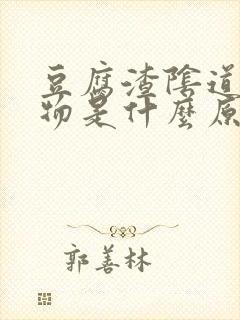 豆腐渣陰道
物是什麼原
郭善林